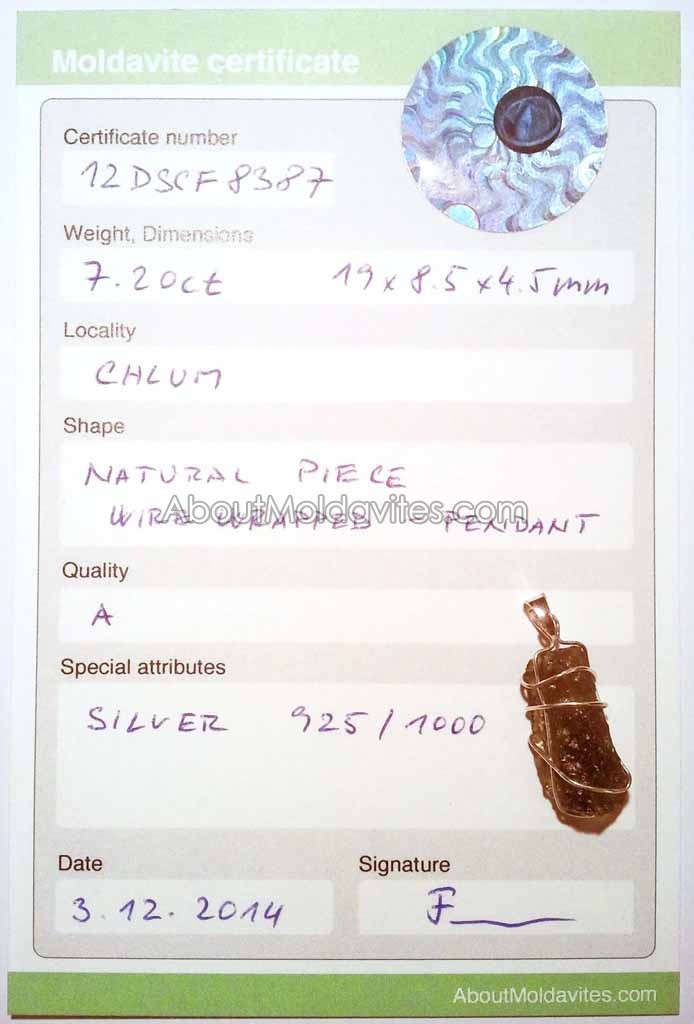 Moldavite certificate
Certificate number
12DSCF8387
Weight, Dimensions
7.20ct 19x8.5x4.5mm
Locality
CHLUM
Shape
NATURAL PIECE
WIRE WRAPPED - PENDANT
AboutMoldavites.com
Quality
A
Special attributes
SILVER 925/1000
Date Signature
3.12.2014 F
AboutMoldavites.com